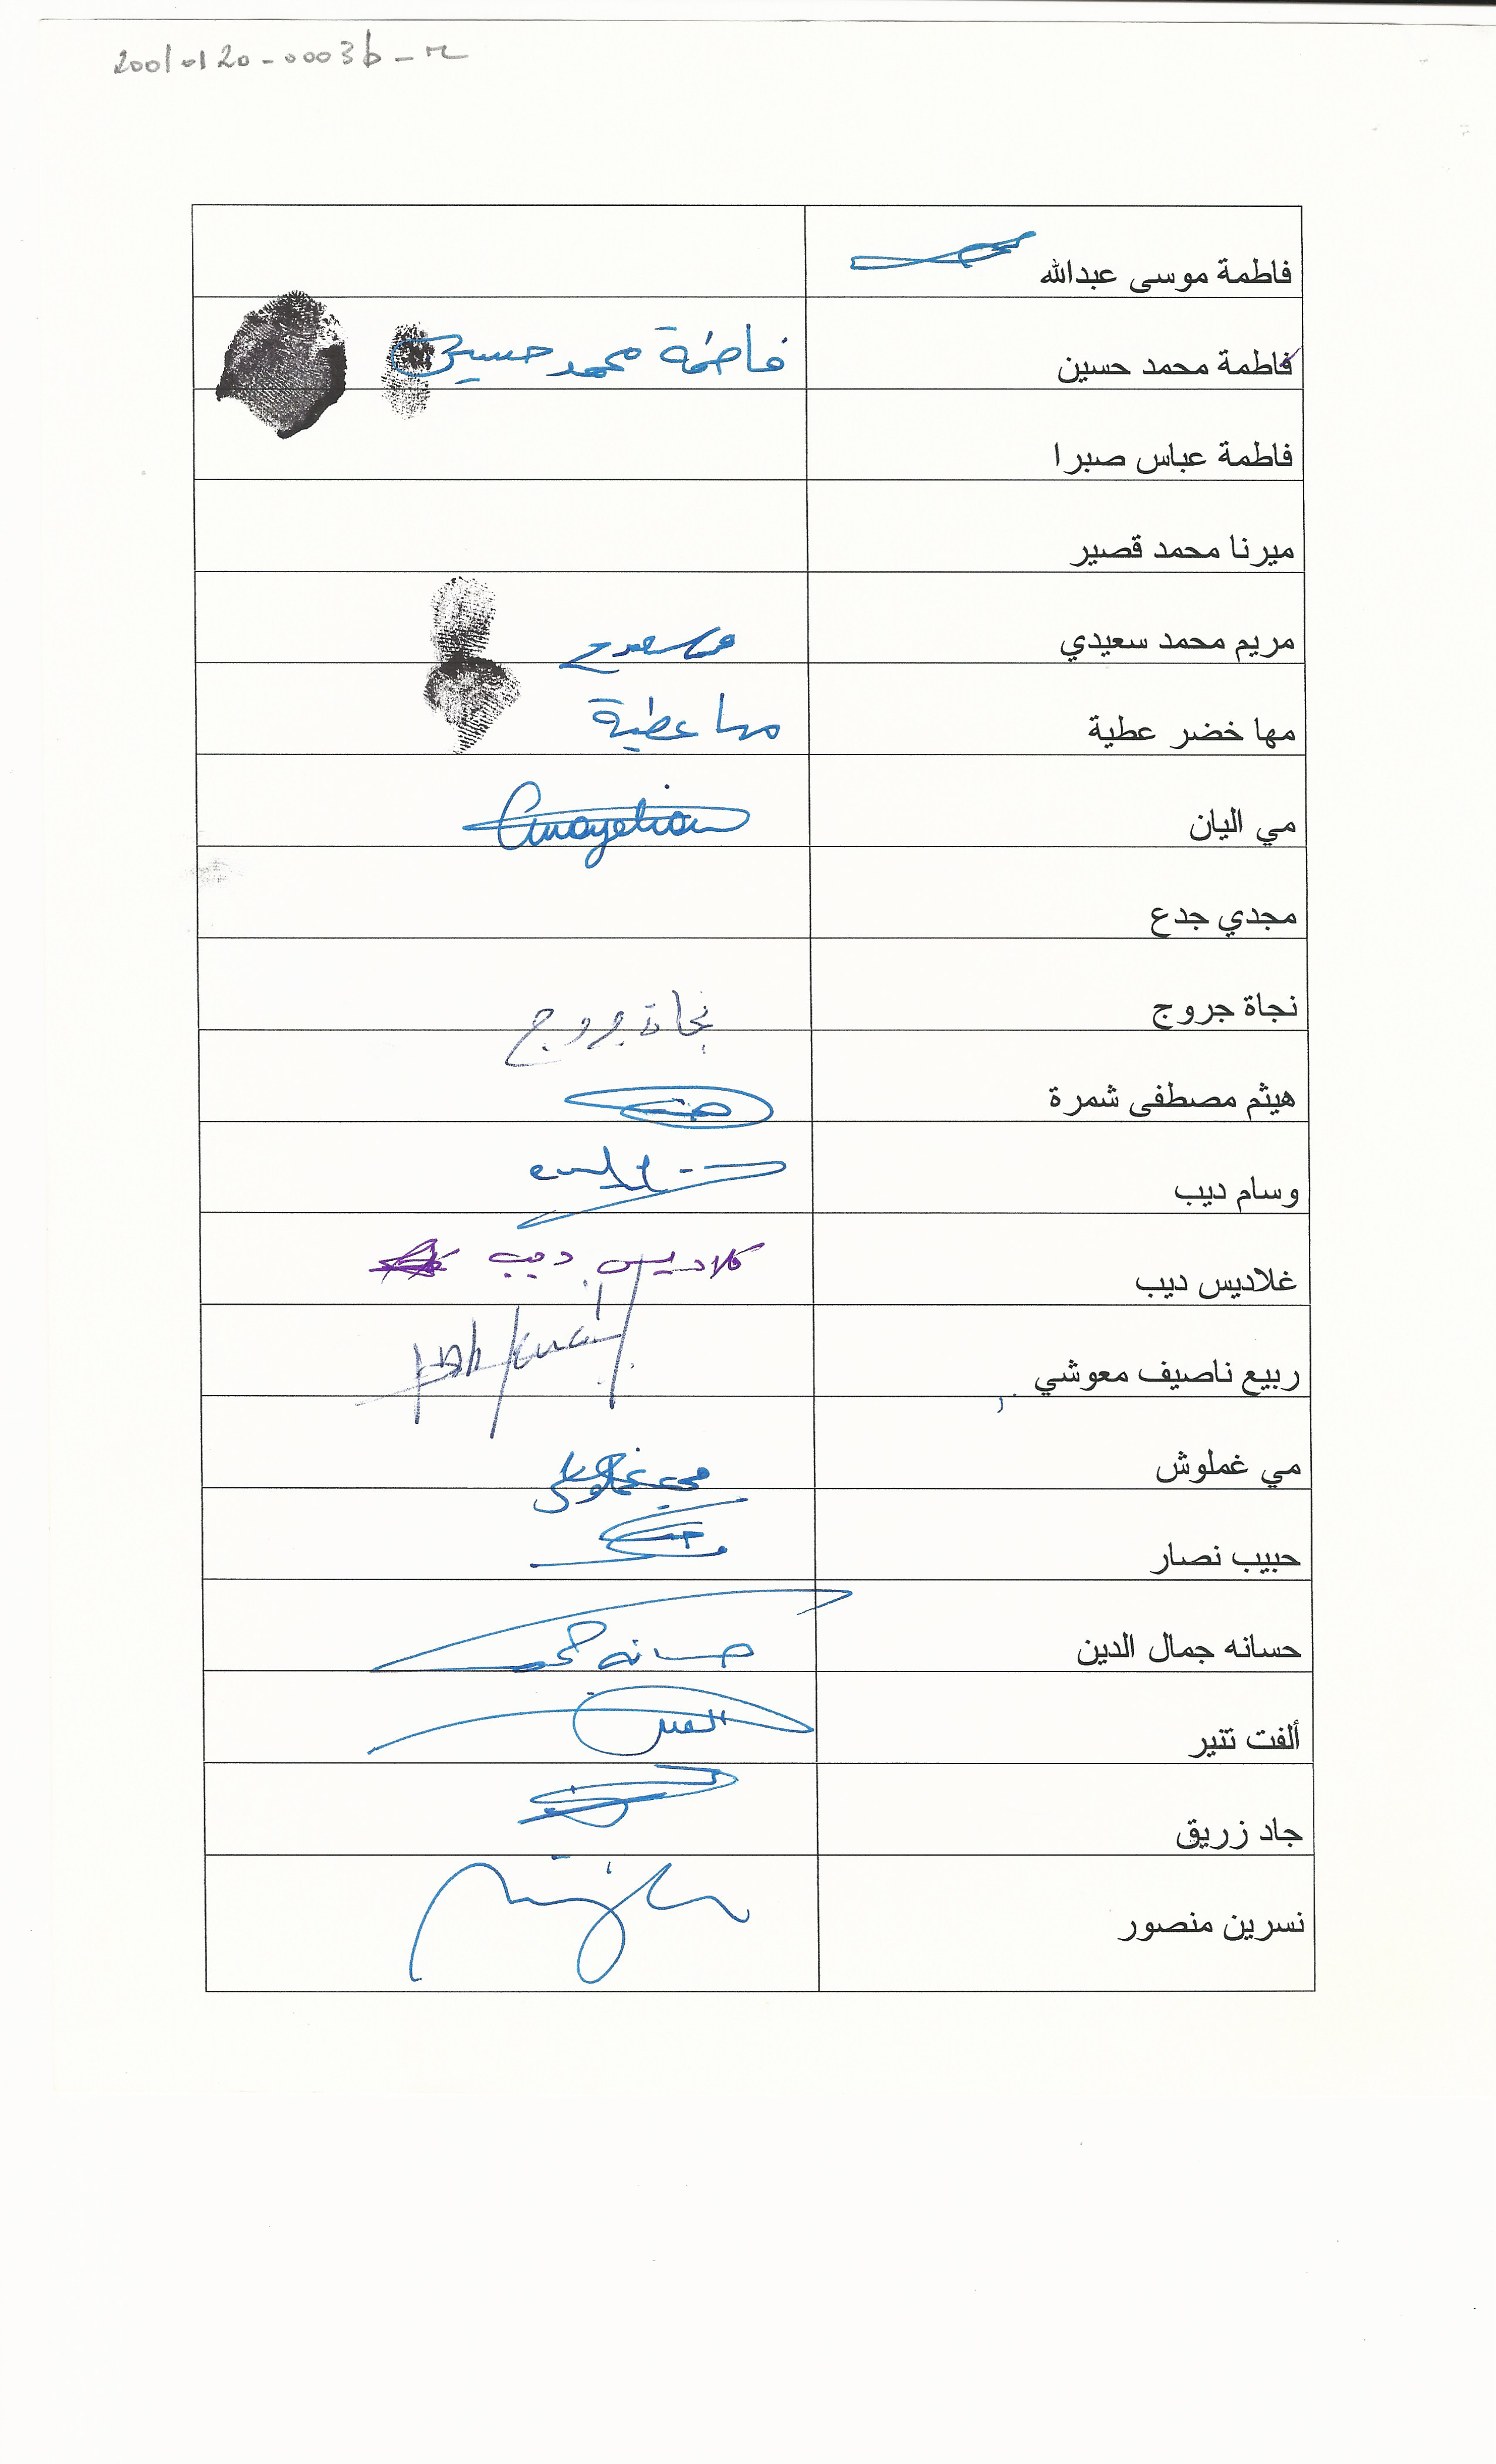 20010120-0003b-r
فاطمة موسى عبدالله
فاطمة محمد حسين فاطمة محمد حسين
فاطمة عباس صبرا
ميرنا محمد قصير
مريم محمد سعيدي
مها خضر عطية مها عطية
مي اليان
مجدي جدع
نجاة جروج نجاة جروج
هيثم مصطفى شمرة
وسام ديب
غلاديس ديب كلاديس ديب
ربيع ناصيف معوشي
مي غملوش مي غملوش
حبيب نصار
حسانه جمال الدين حسانه
ألفت تنير
جاد زريق
نسرين منصور